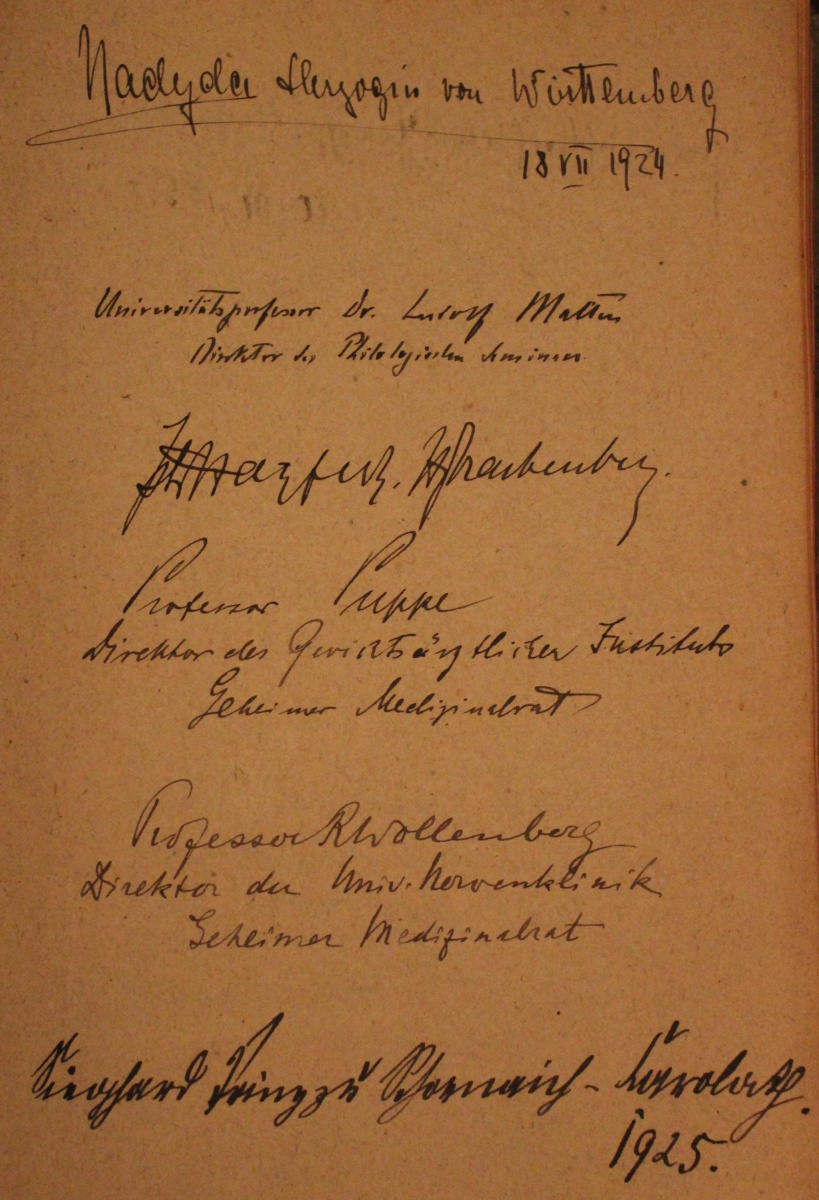 Nadejda Herzogin von Württemberg
18 VII 1924.
Universitätsprofessor Dr. Ludolf Malten
Direktor des Philologischen Seminars
Professor Puppe
Direktor des Gerichtsärztlichen Instituts
Geheimer Medizinalrat
Professor RWollenberg
Direktor der Univ. Nervenklinik
Geheimer Medizinalrat
Sieghard Prinz zu Schoenaich-Carolath.
1925.